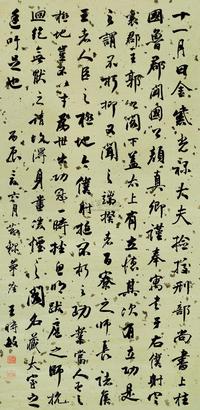 十一月日金紫光祿大夫檢校刑部尚書上柱
國魯郡開國公顏真卿謹奉書于右僕射定
襄郡王郭公閤下蓋太上有立德其次有立功是
之謂不朽抑又聞之端揆者百寮之師長諸侯
王者人臣之極地今僕射挺不朽之功業當人臣之
極地豈不以才為世出功冠一時挫思明跋扈之師抗
迴紇無猒之請故得身畫凌煙之閣名藏太室之
廷吁足畏也 王時敏